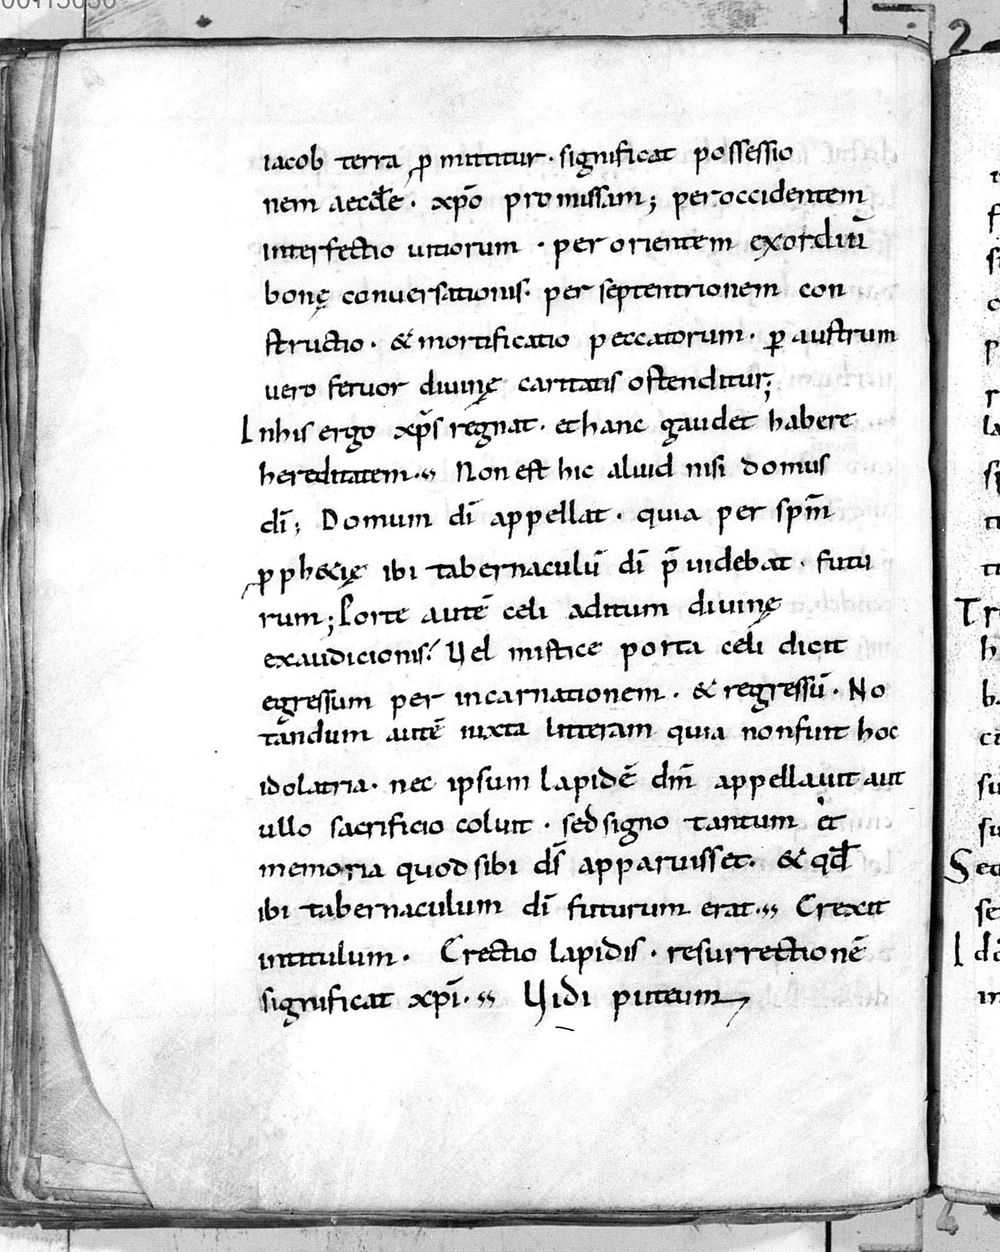 iacob terra ꝓmittitur · significat possessio
nem aeccƚe · xp̄o promissam ; per occidentem
interfectio uitiorum · per orientem exordiū
bonę conuersationis · per septentrionem con
structio · & mortificatio peccatorum · ꝑ austrum
uero feruor diuinę caritatis ostenditur ;
Inhis ergo xp̄s regnat · et hanc gaudet habere
hereditatem ·,, Non est hic aliud nisi domus
dī ; Domum dī appellat · quia per sp̄m
ꝓph&ię ibi tabernaculū dī p̄uidebat · futu
rum ; Porte autē celi aditum diuinę
exaudicionis ·/ Uel mistice porta celi dicit
egressum per incarnationem · & regressū · No
tandum autē iuxta litteram quia non fuit hoc
idolatria · nec ipsum lapidē dm̄ appellauit aut
ullo sacrificio coluit · sed signo tantum et
memoria quod sibi ds̄ apparuisset · & qđ
ibi tabernaculum dī futurum erat ·,, Erexit
intitulum · Erectio lapidis · resurrectionē
significat xp̄i ·,, Uidi puteum
2